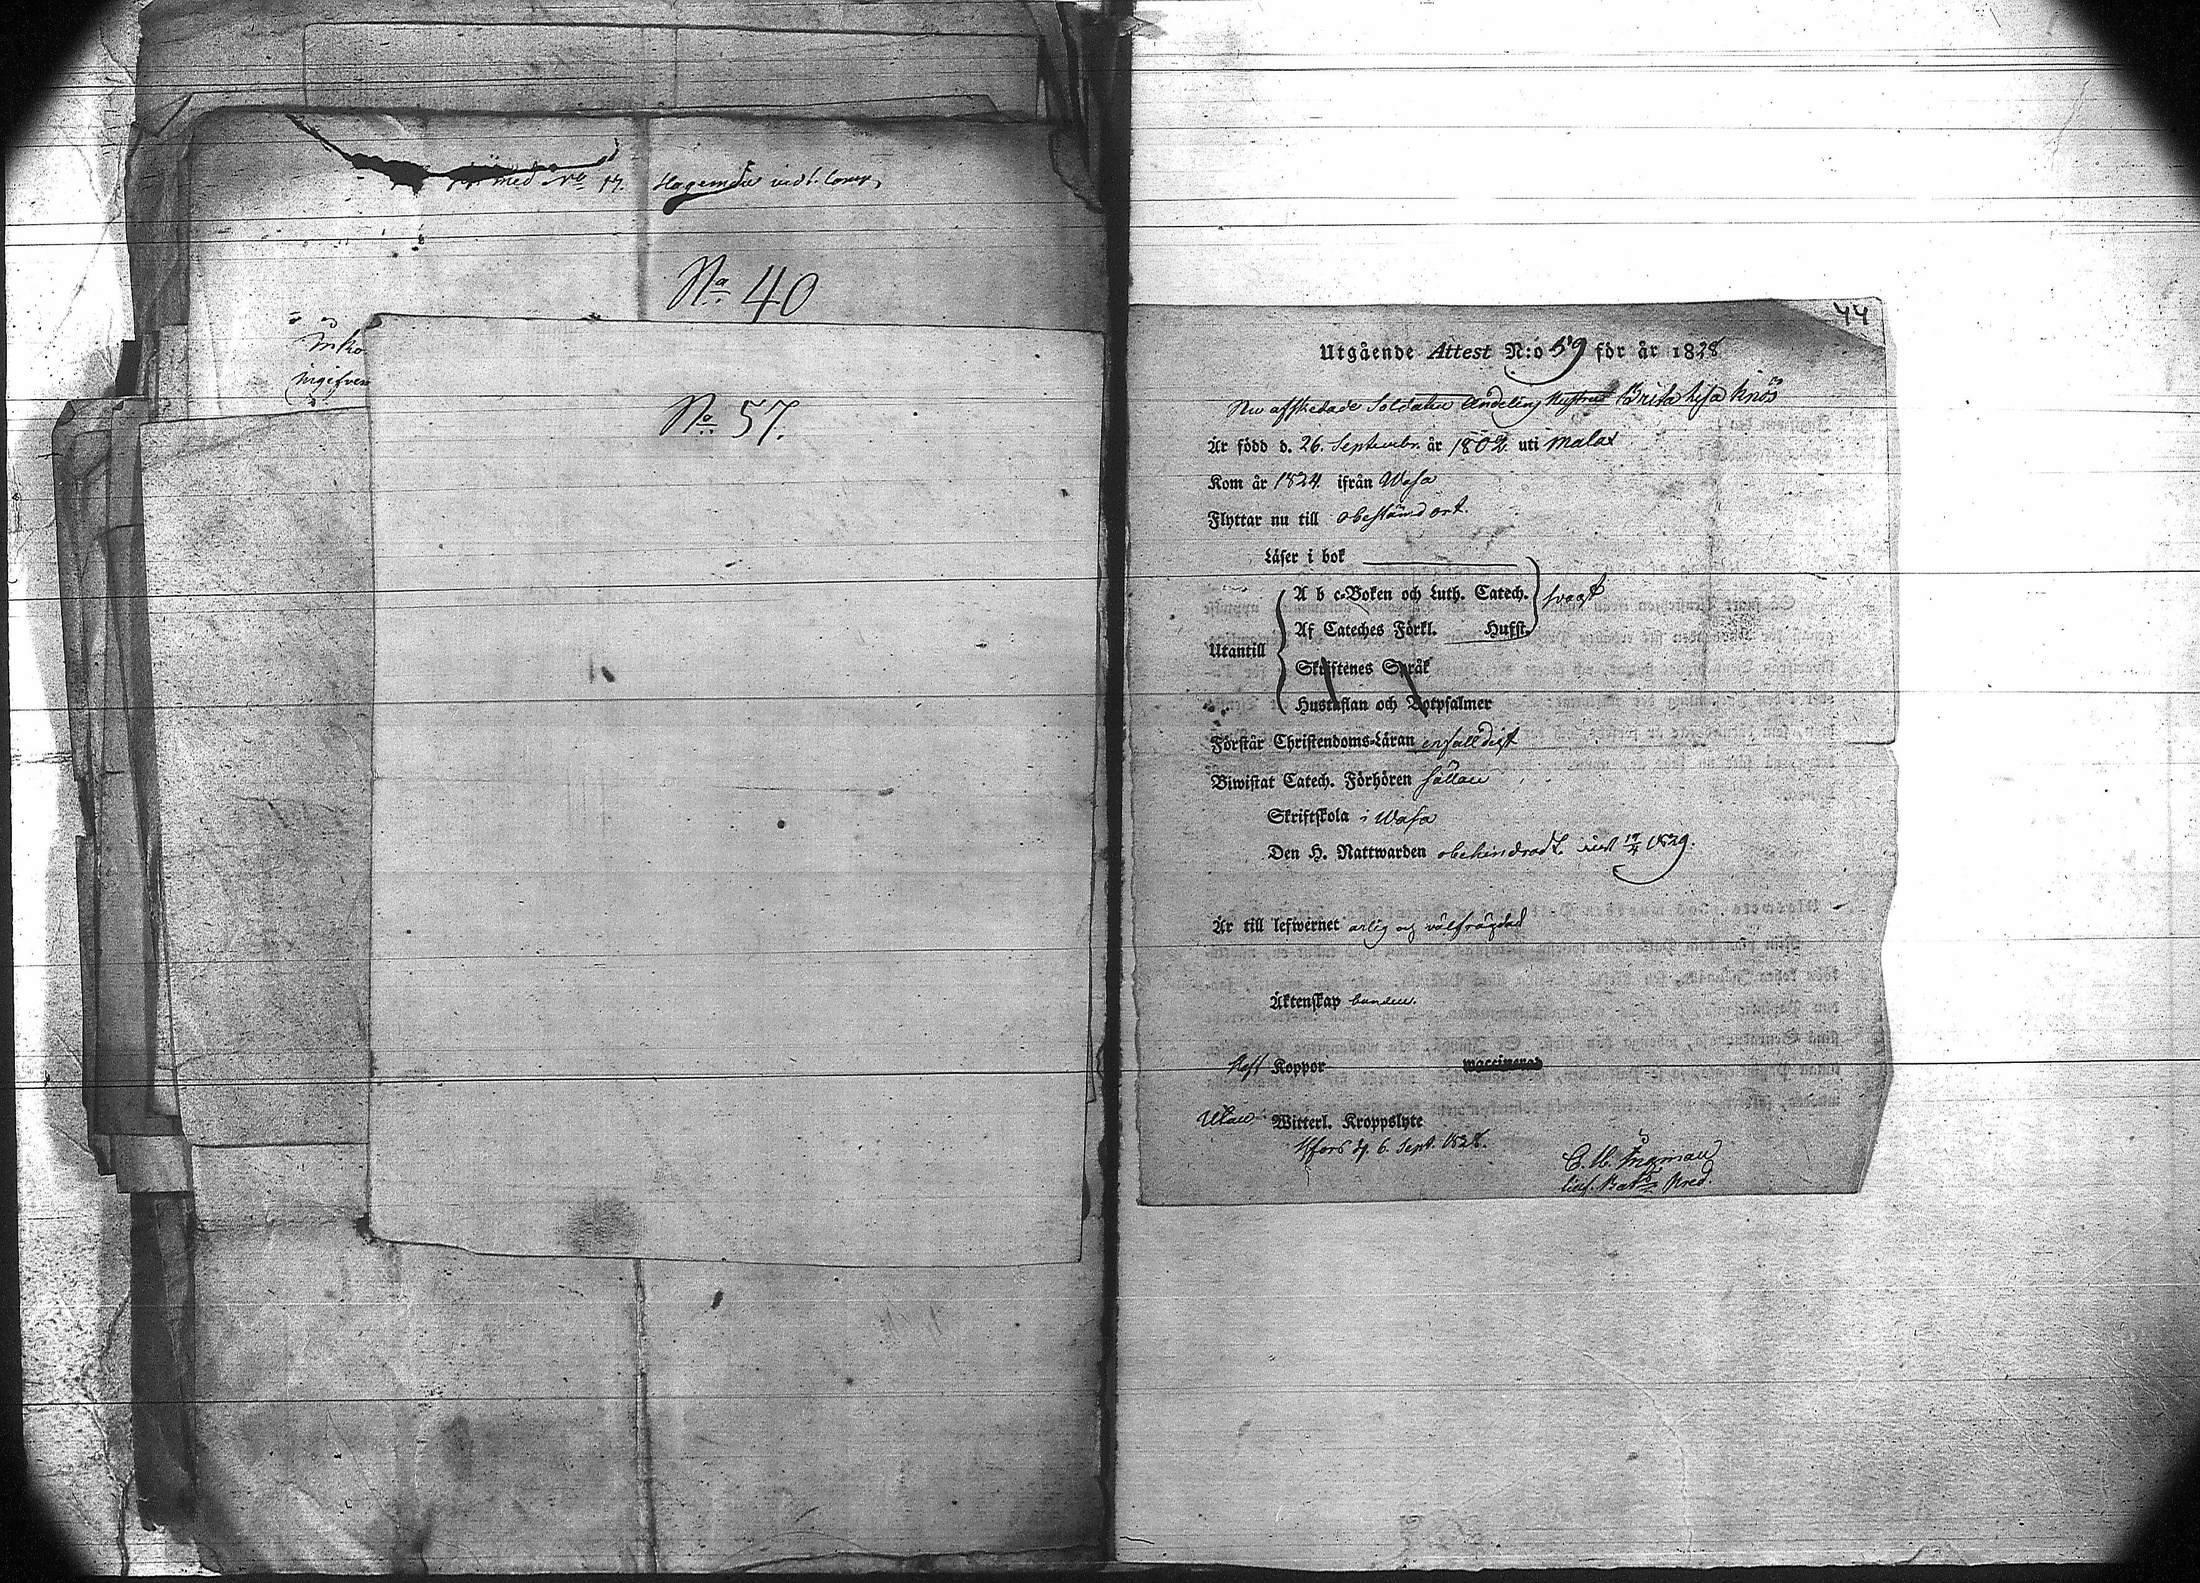 med No 17.
No 40
No 57.
44
Utgående Attest N:o 59 för år 1828
Nu afskedade Soldaten Andelins Hustru Brita Lisa Knös
Är född d. 26. Septembr. år 1802 uti Malax
Kom år 1824. ifrån Wasa
Flyttar nu till obestämd ort.
Läser i bok
A b c-Boken och Luth. Catech. svagt
Af Cateches Förkl. Hufst.
Utantill
Skriftenes Språk
Hustaflan och Botpsalmer
Förstår Christendoms-Läran enfalldigt
Biwistat Catech. Förhören sällan
Skriftskola i Wasa
Den H. Nattwarden obehindradt 1829.
Är till lefwernet ärlig og välfrägdad
Äktenskap bunden.
Haft Koppor waccinerad
Utan Witterl. Kroppslyte
Hfors d. 6. Sept. 1828.
Ingman
Pred.